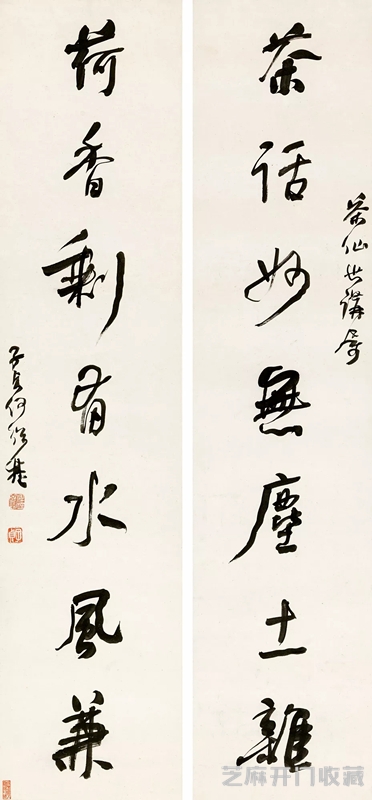 茶仙世講屬
茶話妙無塵土雜
荷香剩有水風兼
子貞何紹基
芝麻开门收藏